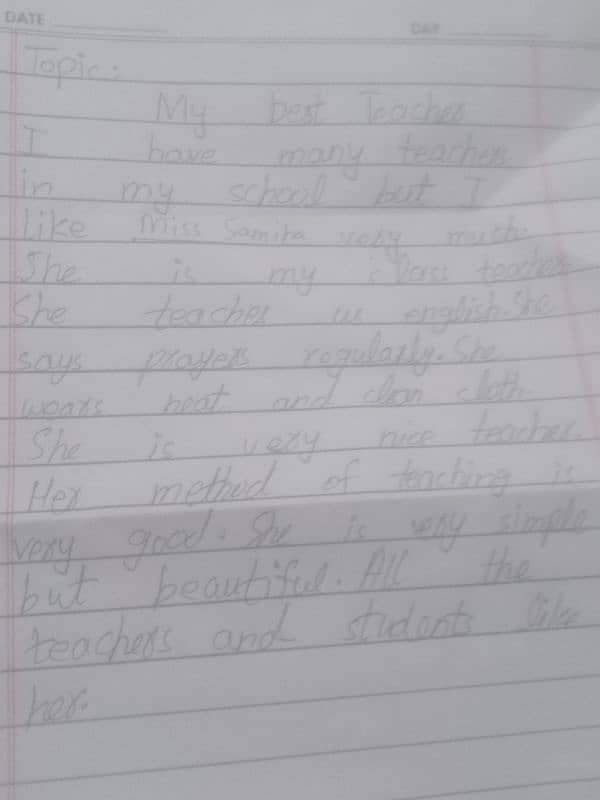 DATE DAY
Topic:
My best Teacher
I have many teachers
in my school but I
like Miss Samina very much
She is my class teacher
She teaches us english. She
says prayers regularly. She
wears neat and clean cloth
She is very nice teacher.
Her method of teaching is
very good. She is very simple
but beautiful. All the
teachers and students like
her.